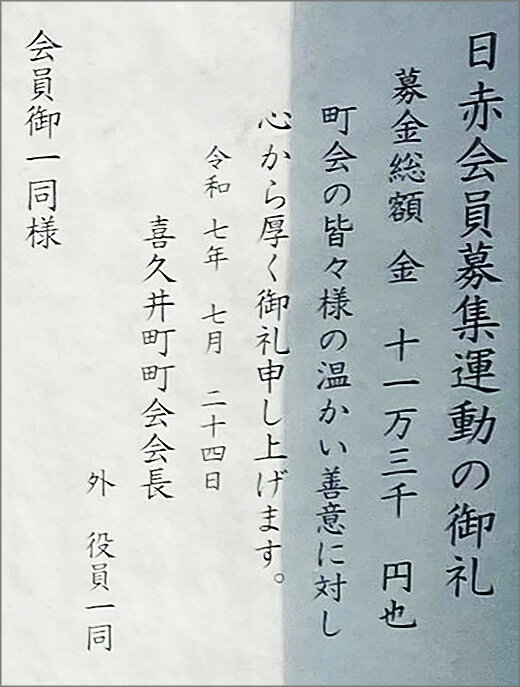 日赤会員募集運動の御礼
募金総額 金 十一万三千 円也
町会の皆々様の温かい善意に対し
心から厚く御礼申し上げます。
令和 七年 七月 二十四日
喜久井町町会会長
外 役員一同
会員御一同様